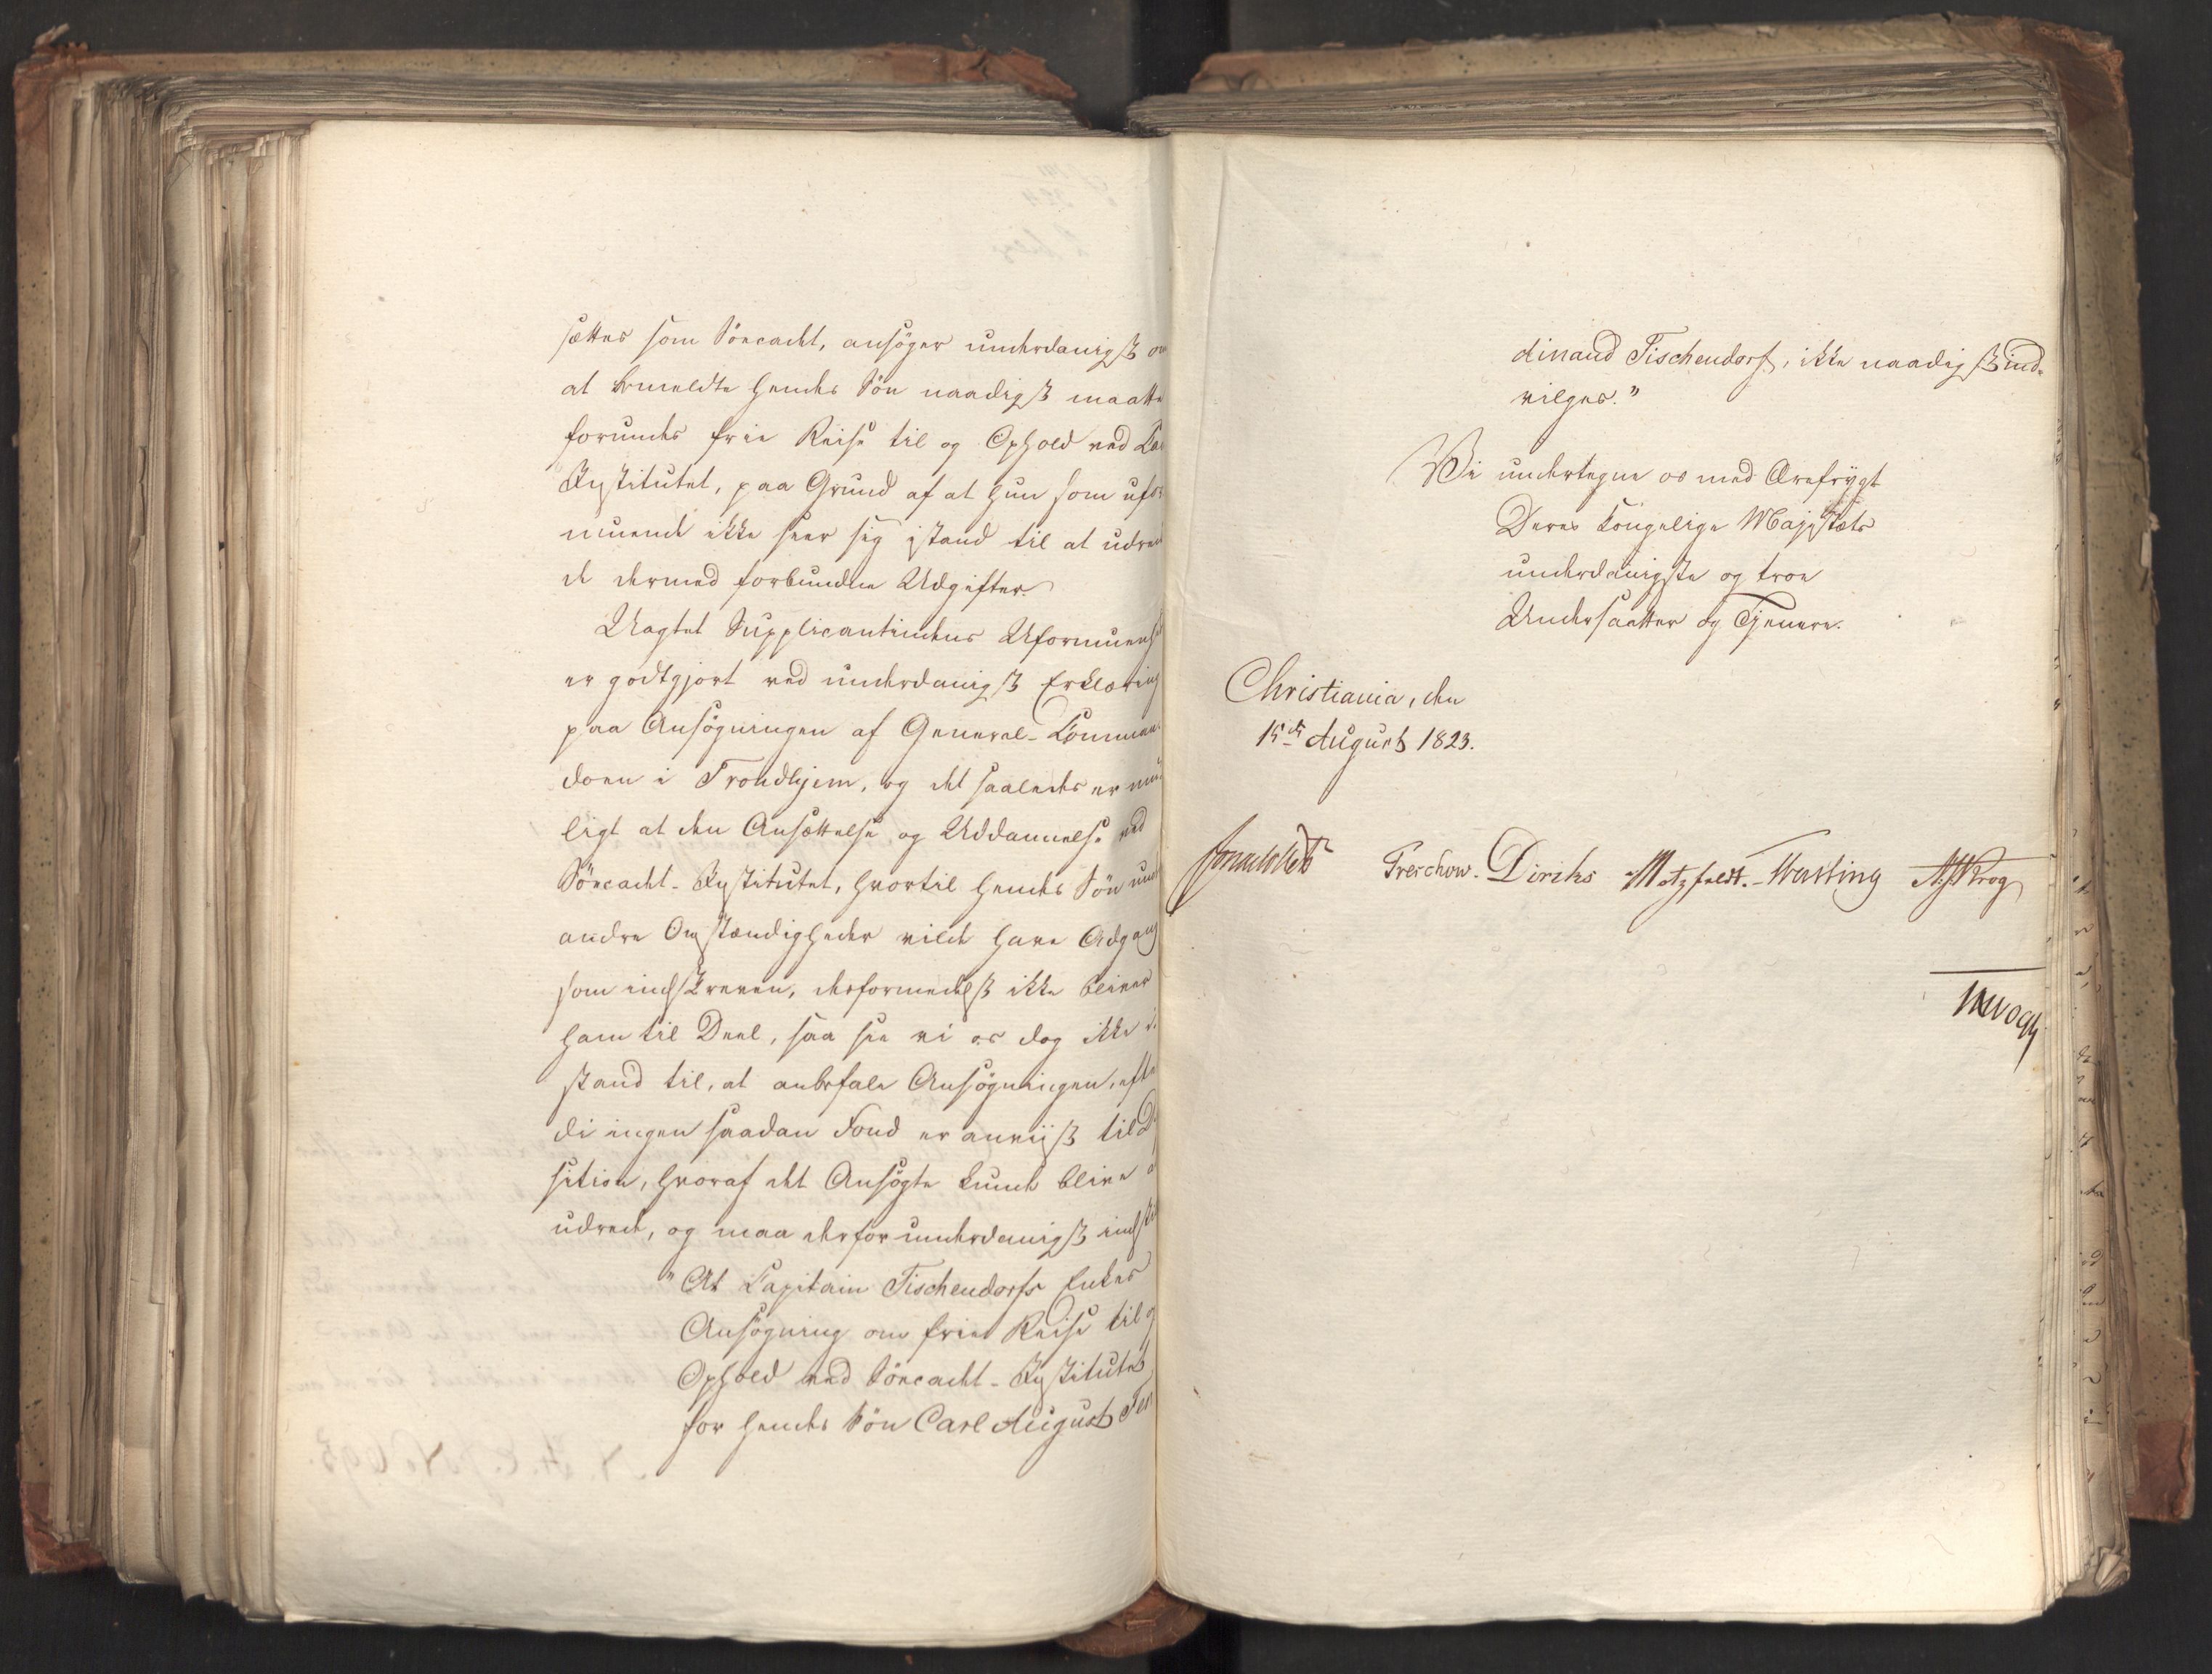 sættes som Söecadet, ansöger underdanigst om
at bemeldte hendes Sön naadigst maatte
forundes frie Reise til og Ophold ved
Institutet, paa Grund af at hun som ufor
muende ikke seer sig istand til at udrede
de dermed forbundne Udgifter.
Uagtet Supplicantindens Uformuenhed
er godtgjort ved underdanigst Erklæring
paa Ansögningen af General-Comman-
doen i Trondhjem, og det saaledes er mue
ligt at den Ansættelse og Uddannelse ved
Söecadet-Institutet, hvortil hendes Sön under
andre Omstændigheder vilde have Adgang
som indskreven, desformedelst ikke bliver
ham til Deel, saa see vi os dog ikke i
stand til, at anbefale Ansögningen, efter
di ingen saadan Fond er anviist til Dispo
sition, hvoraf det Ansögte kunde blive at
udrede, og maa derfor underdanigst indstille
"At Capitain Tischendorfs Enkes
Ansögning om friee Reise til og
Ophold ved Söecadet-Institutet
for hendes Sön Carl August Fer
dinand Tischendorf, ikke naadigst ind-
vilges."
Vi undertegne os med Ærefrygt
Deres Kongelige Majestæts
underdanigste og troe
Undersaatter og Tjenere.
Christiania, den
15de August 1823.
Treschow. Diriks Motzfeldt. Fasting N.J. Krog